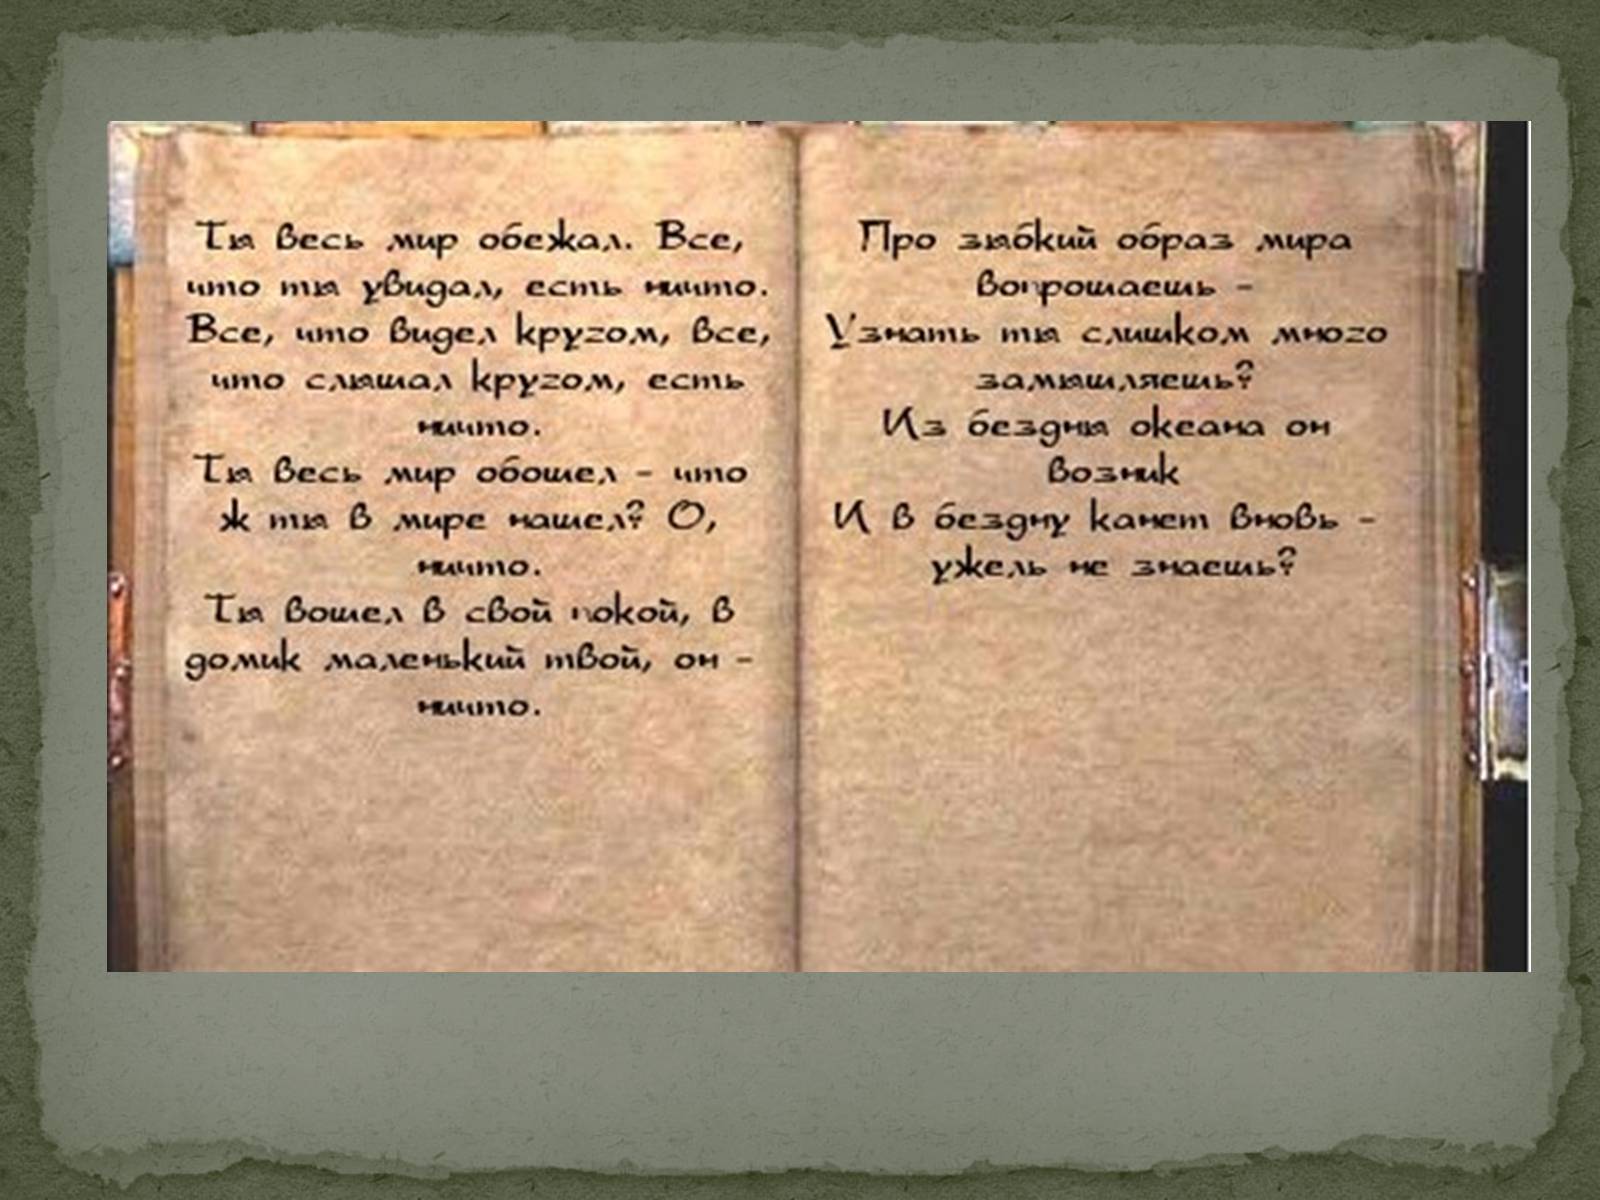 Ты весь мир обежал. Все,
что ты увидал, есть ничто.
Все, что видел кругом, все,
что слышал кругом, есть
ничто.
Ты весь мир обошел - что
ж ты в мире нашел? О,
ничто.
Ты вошел в свой покой, в
домик маленький твой, он -
ничто.
Про зыбкий образ мира
вопрошаешь -
Узнать ты слишком много
замышляешь?
Из бездны океана он
возник
И в бездну канет вновь -
ужель не знаешь?